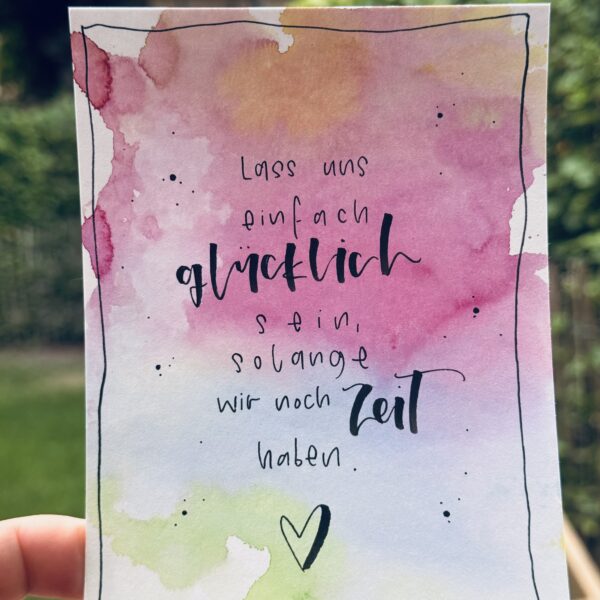 Lass uns
einfach
glücklich
sein,
solange
wir noch Zeit
haben.